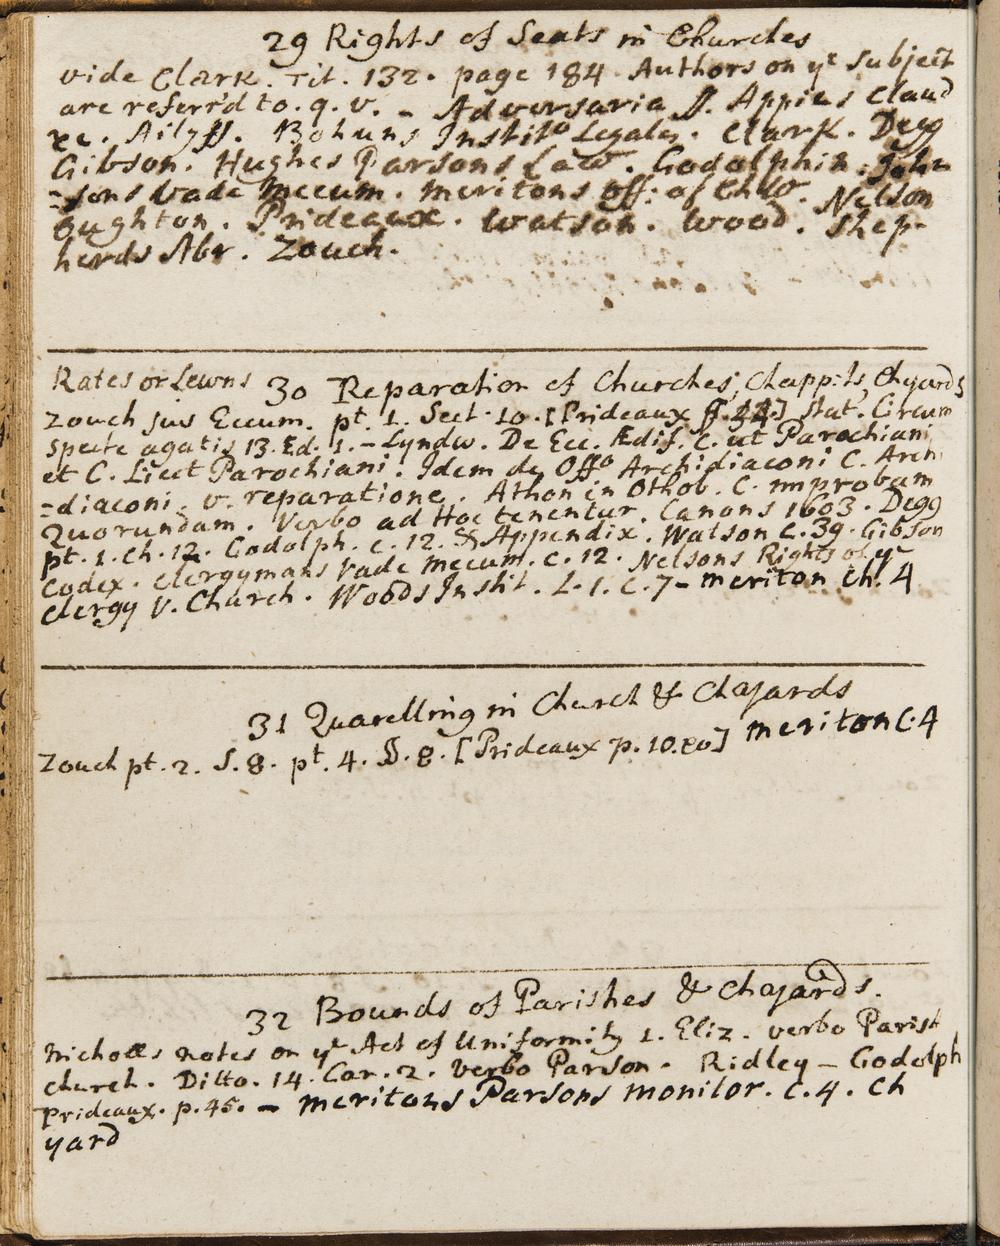 29 Rights of Seats in Churches
vide Clark. Tit. 132. page 184. Authors on ye subject
are referr'd to. q. v. - Adversaria ff. Appius Claud
xc. Ailyff. Bohuns Instito Legales. Clark. Degg
Gibson. Hughes Parsons Law. Godolphin. John
=sons Vade Mecum. Meritons off: of Chw. Nelson
Oughton. Prideaux. Watson. Wood. Shep-
herds Abr. Zouch.
Rates or Lewns 30 Reparation of Churches, Chappils Chyards
Zouch jus Eccum. pt. 1. Sect. 10. [Prideaux ff. 44.] Stat. Circum
specte agatis 13. Ed. 1. - Lyndw. De Ecc. Ædif. C. ut Parochiani
et C. Licet Parochiani. Idem de Offo Archidiaconi C. Archi
=diaconi. v. reparatione. Athon in Othob. C. improbam
Quorundam. Verbo ad Hoc tenentur. Canons 1603. Degg
pt. 1. Ch. 12. Godolph. c. 12. & Appendix. Watson C. 39. Gibson
Codex. Clergymans Vade Mecum. c. 12. Nelsons Rights of ye
Clergy v. Church. Woods Instit. L. 1. C. 7 - Meriton Ch. 4
31 Quarelling in Church & Chyards
Zouch pt. 2. S. 8. pt. 4. S. 8. [Prideaux p. 10.80] Meriton C. 4
32 Bounds of Parishes & Chyards.
Nicholls notes on ye Act of Uniformity 1. Eliz. verbo Parish
church. Ditto. 14. Car. 2. verbo Parson. Ridley - Godolph
Prideaux. p. 45. - Meritons Parsons Monitor. C. 4. Ch
yard